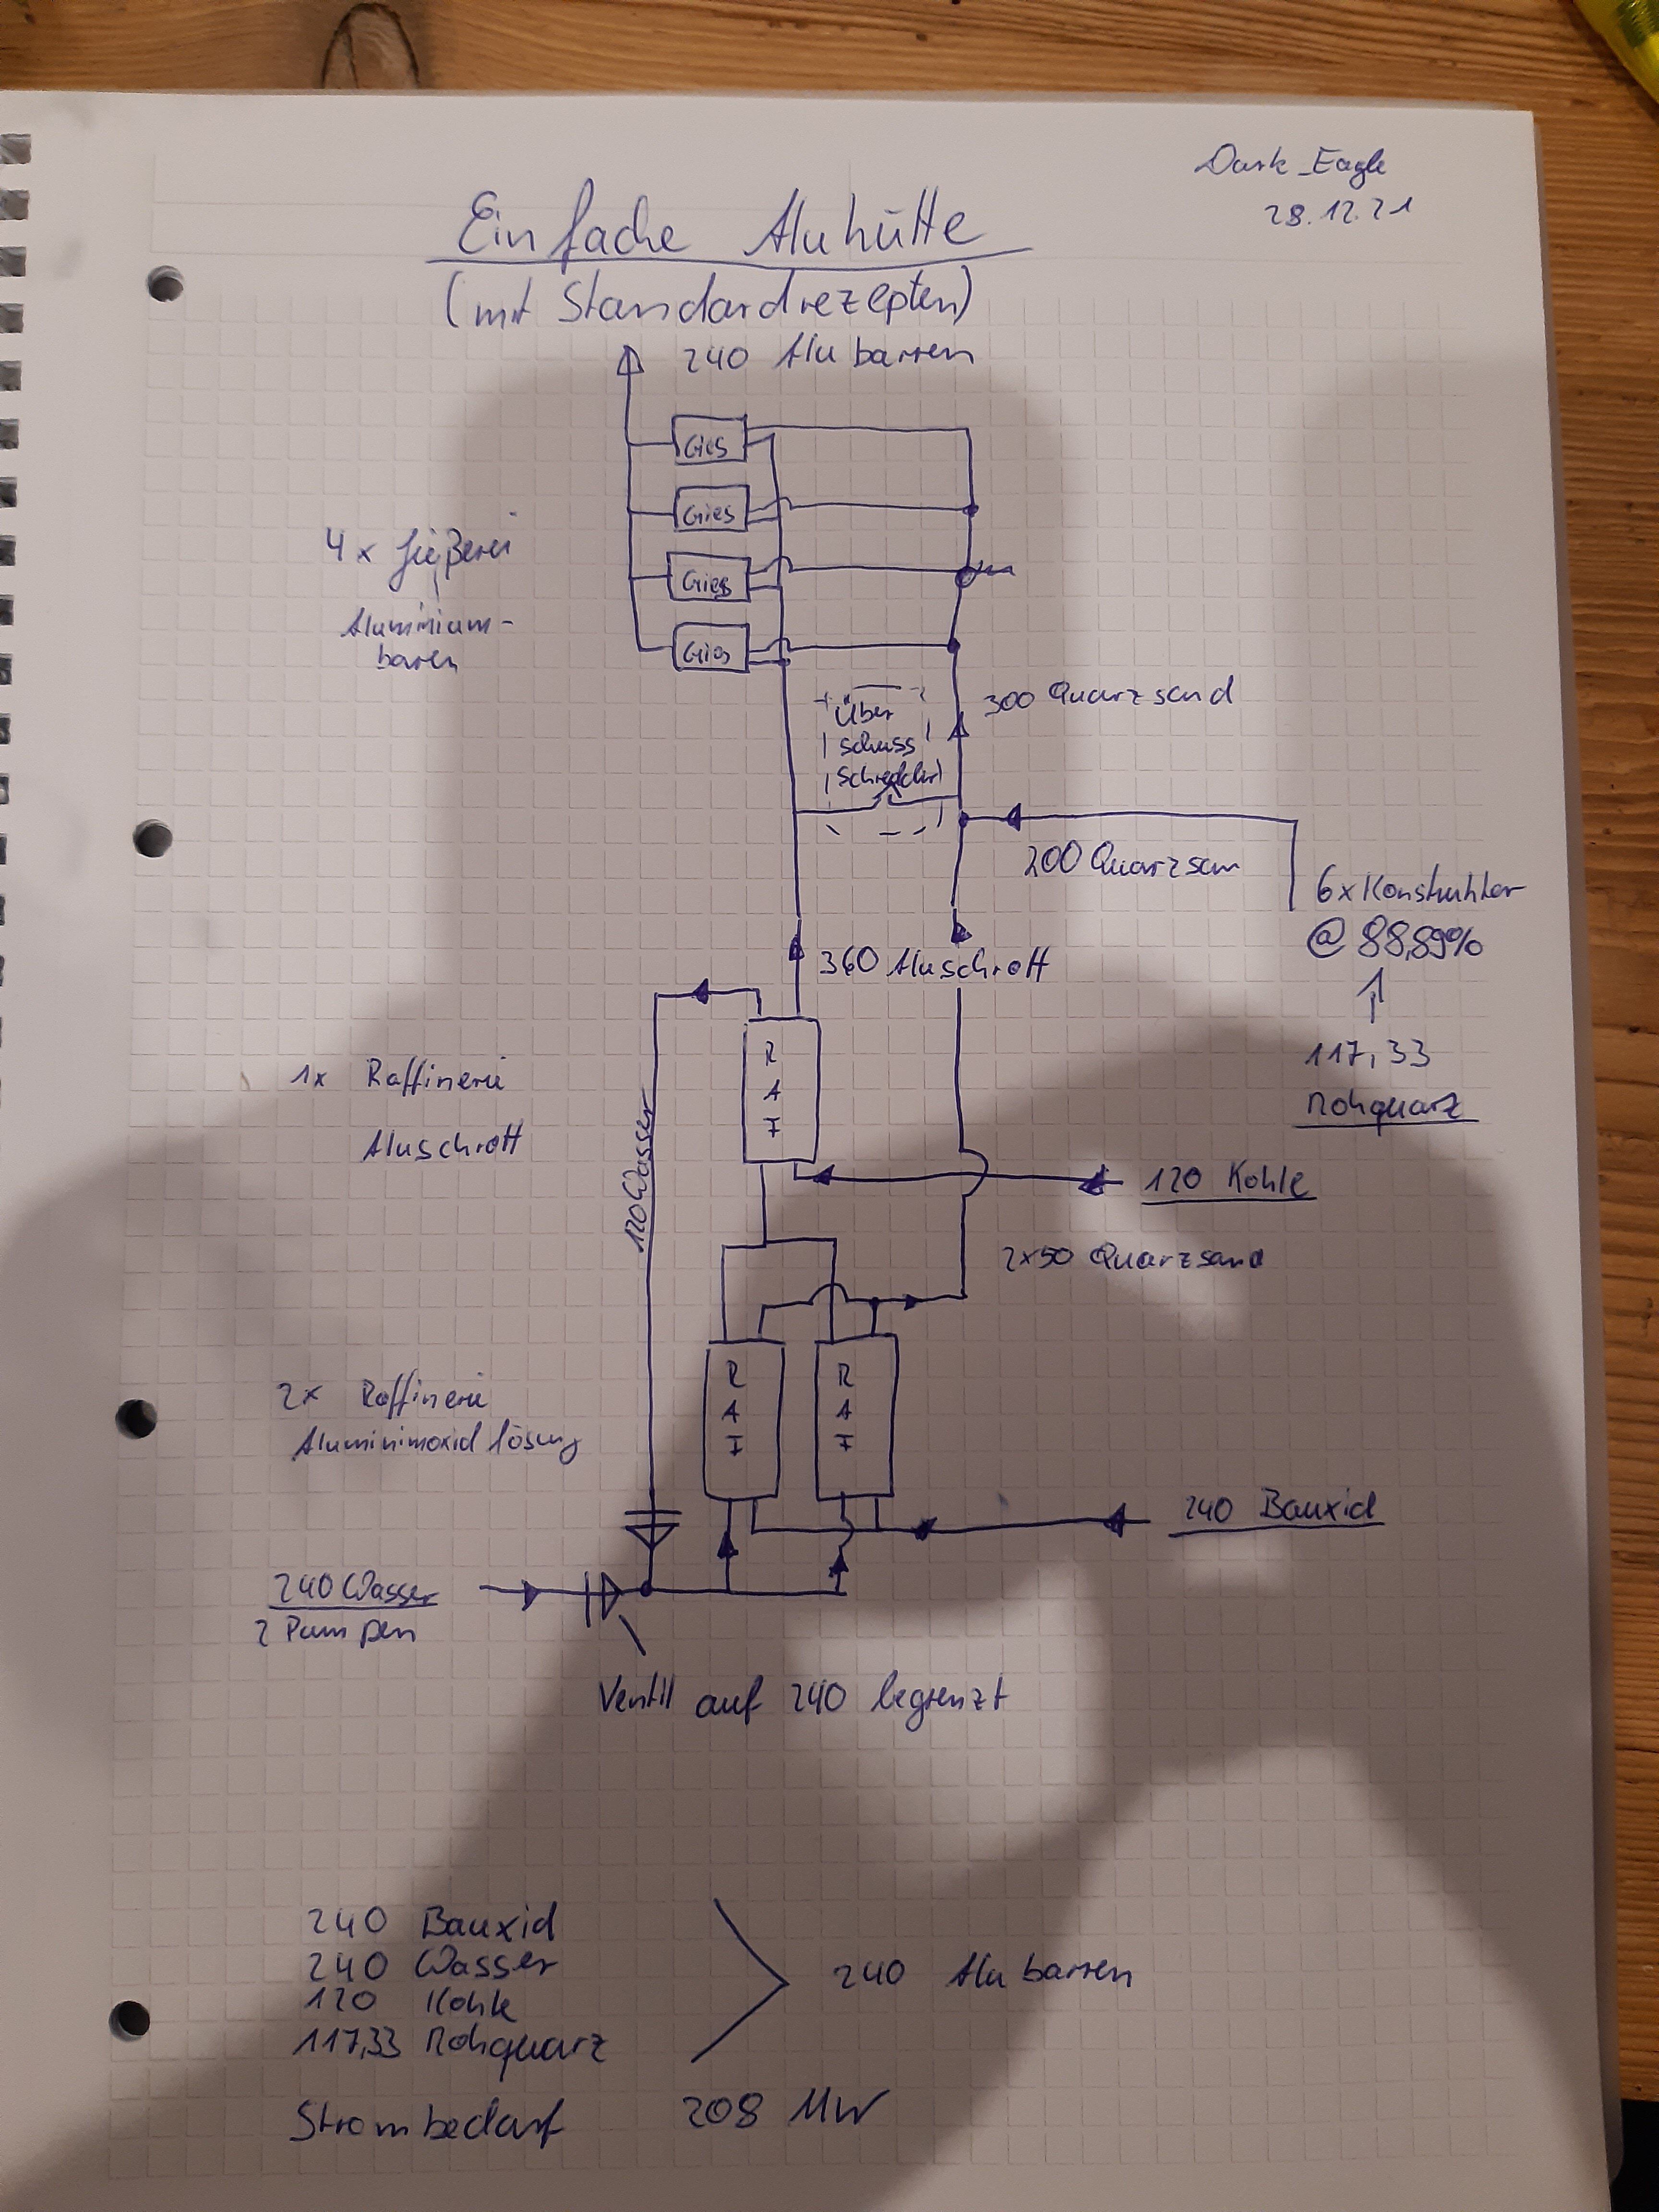 Dark_Eagle
28.12.21
Einfache Aluhütte
(mit Standardrezepten)
240 Alubarren
Gies
Gies
4x Gießerei
Gies
Aluminium-
baren
Gies
300 Quarzsand
Über
schuss
Schredder
200 Quarzsan
6x Konstruktor
@ 88,89%
360 Aluschrott
117,33
Rohquarz
1x Raffinerie
Aluschrott
R
A
F
120 Wasser
120 Kohle
2x50 Quarzsand
2x Raffinerie
Aluminimoxid lösung
R
A
F
R
A
F
240 Bauxid
240 Wasser
2 Pumpen
Ventil auf 240 begrenzt
240 Bauxid
240 Wasser
120 Kohle
117,33 Rohquarz
240 Alubarren
Strombedarf 208 MW